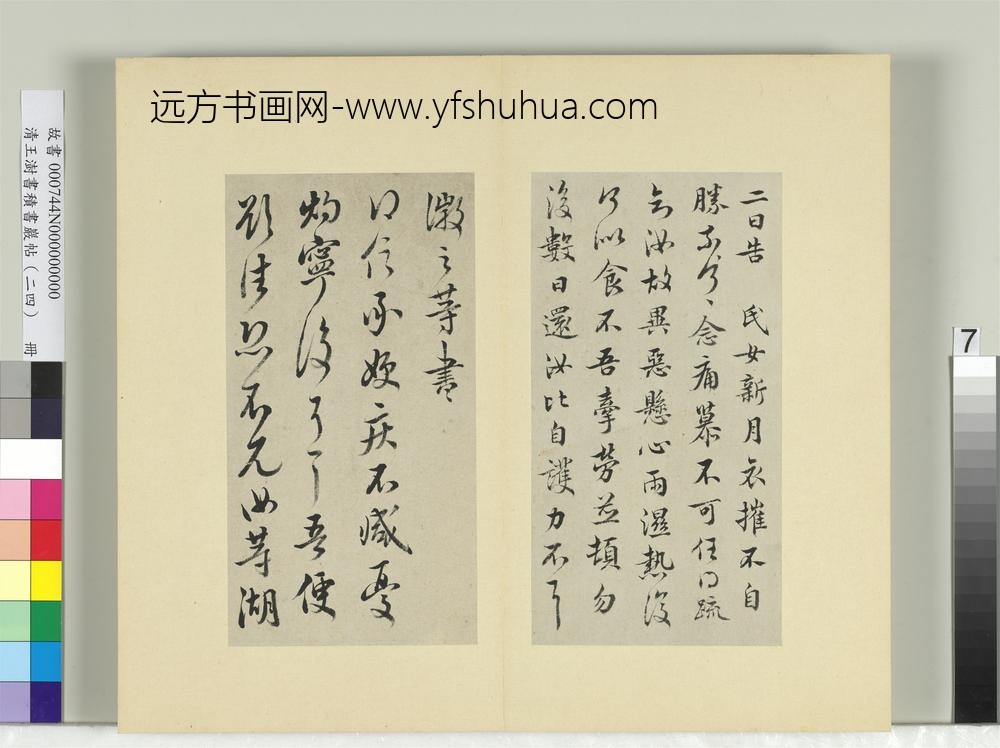 远方书画网-www.yfshuhua.com
故書 000744N000000000
清王澍書積書巖帖(二四) 冊
7
二日告 氏女新月哀摧不自
勝奈何、念痛慕不可任得疏
知汝故異惡懸心雨濕熱復
何似食不吾牽勞並頓勿
復數日還汝比自護力不
徽之等書
得信承嫂疾不減憂
灼寧復
吾便
汝等湖